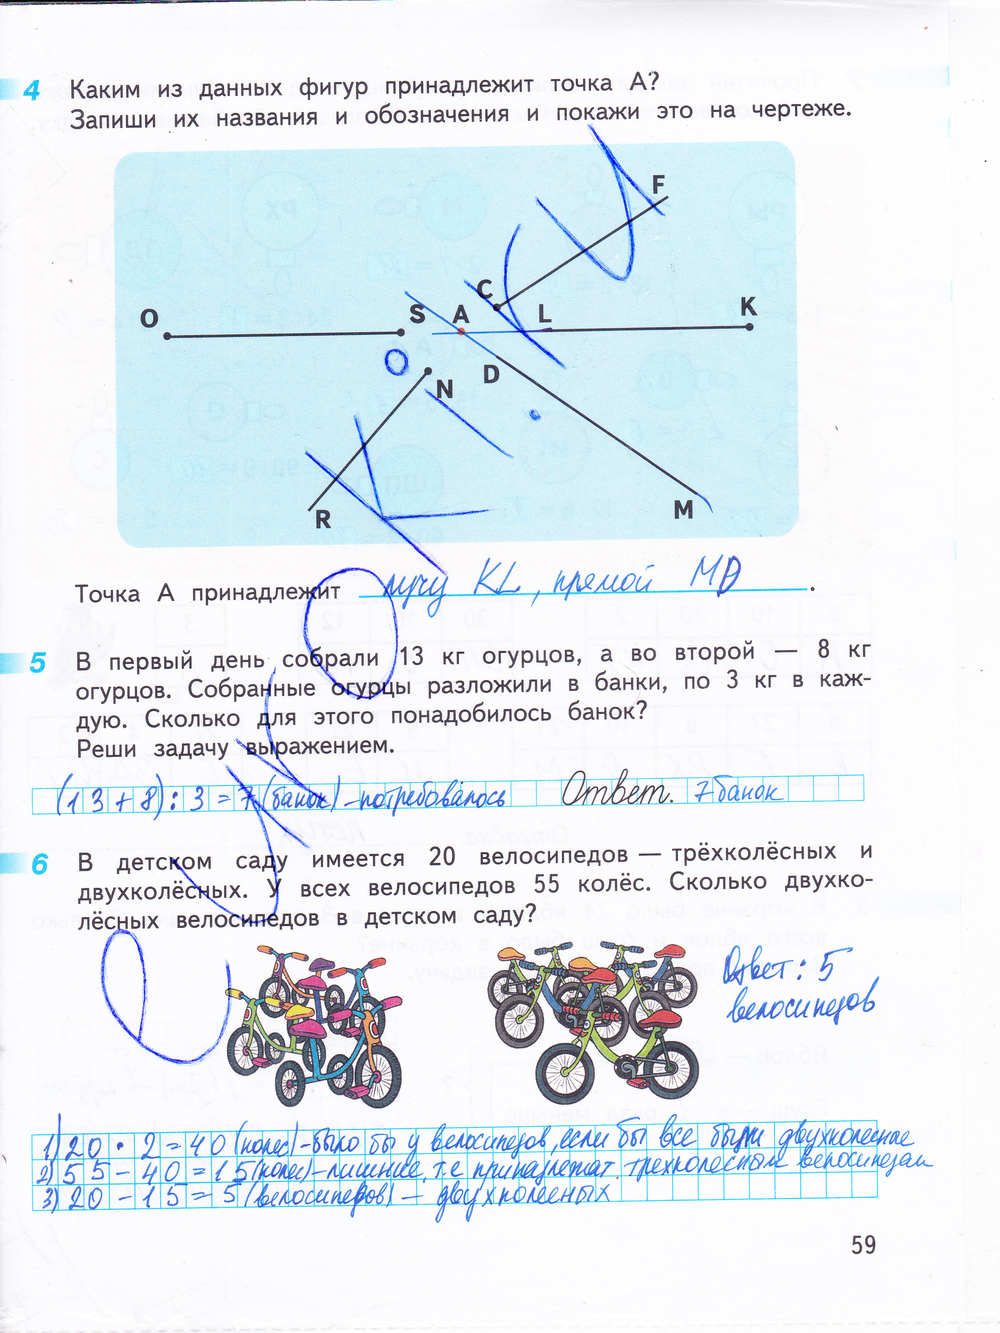 4 Каким из данных фигур принадлежит точка А?
Запиши их названия и обозначения и покажи это на чертеже.
F
C
O S A L K
D
N
R M
Точка А принадлежит лучу KL, прямой MD.
5 В первый день собрали 13 кг огурцов, а во второй — 8 кг
огурцов. Собранные огурцы разложили в банки, по 3 кг в каж-
дую. Сколько для этого понадобилось банок?
Реши задачу выражением.
(13+8):3=7(банок)-потребовалось Ответ. 7 банок
6 В детском саду имеется 20 велосипедов — трёхколёсных и
двухколёсных. У всех велосипедов 55 колёс. Сколько двухко-
лёсных велосипедов в детском саду?
Ответ: 5
велосипедов
1) 20·2=40(колес)-было бы у велосипедов, если бы все были двухколесные
2) 55-40=15(колес)-лишние, т.е принадлежат трехколесным велосипедам
3) 20-15=5(велосипедов)- двухколесных
59